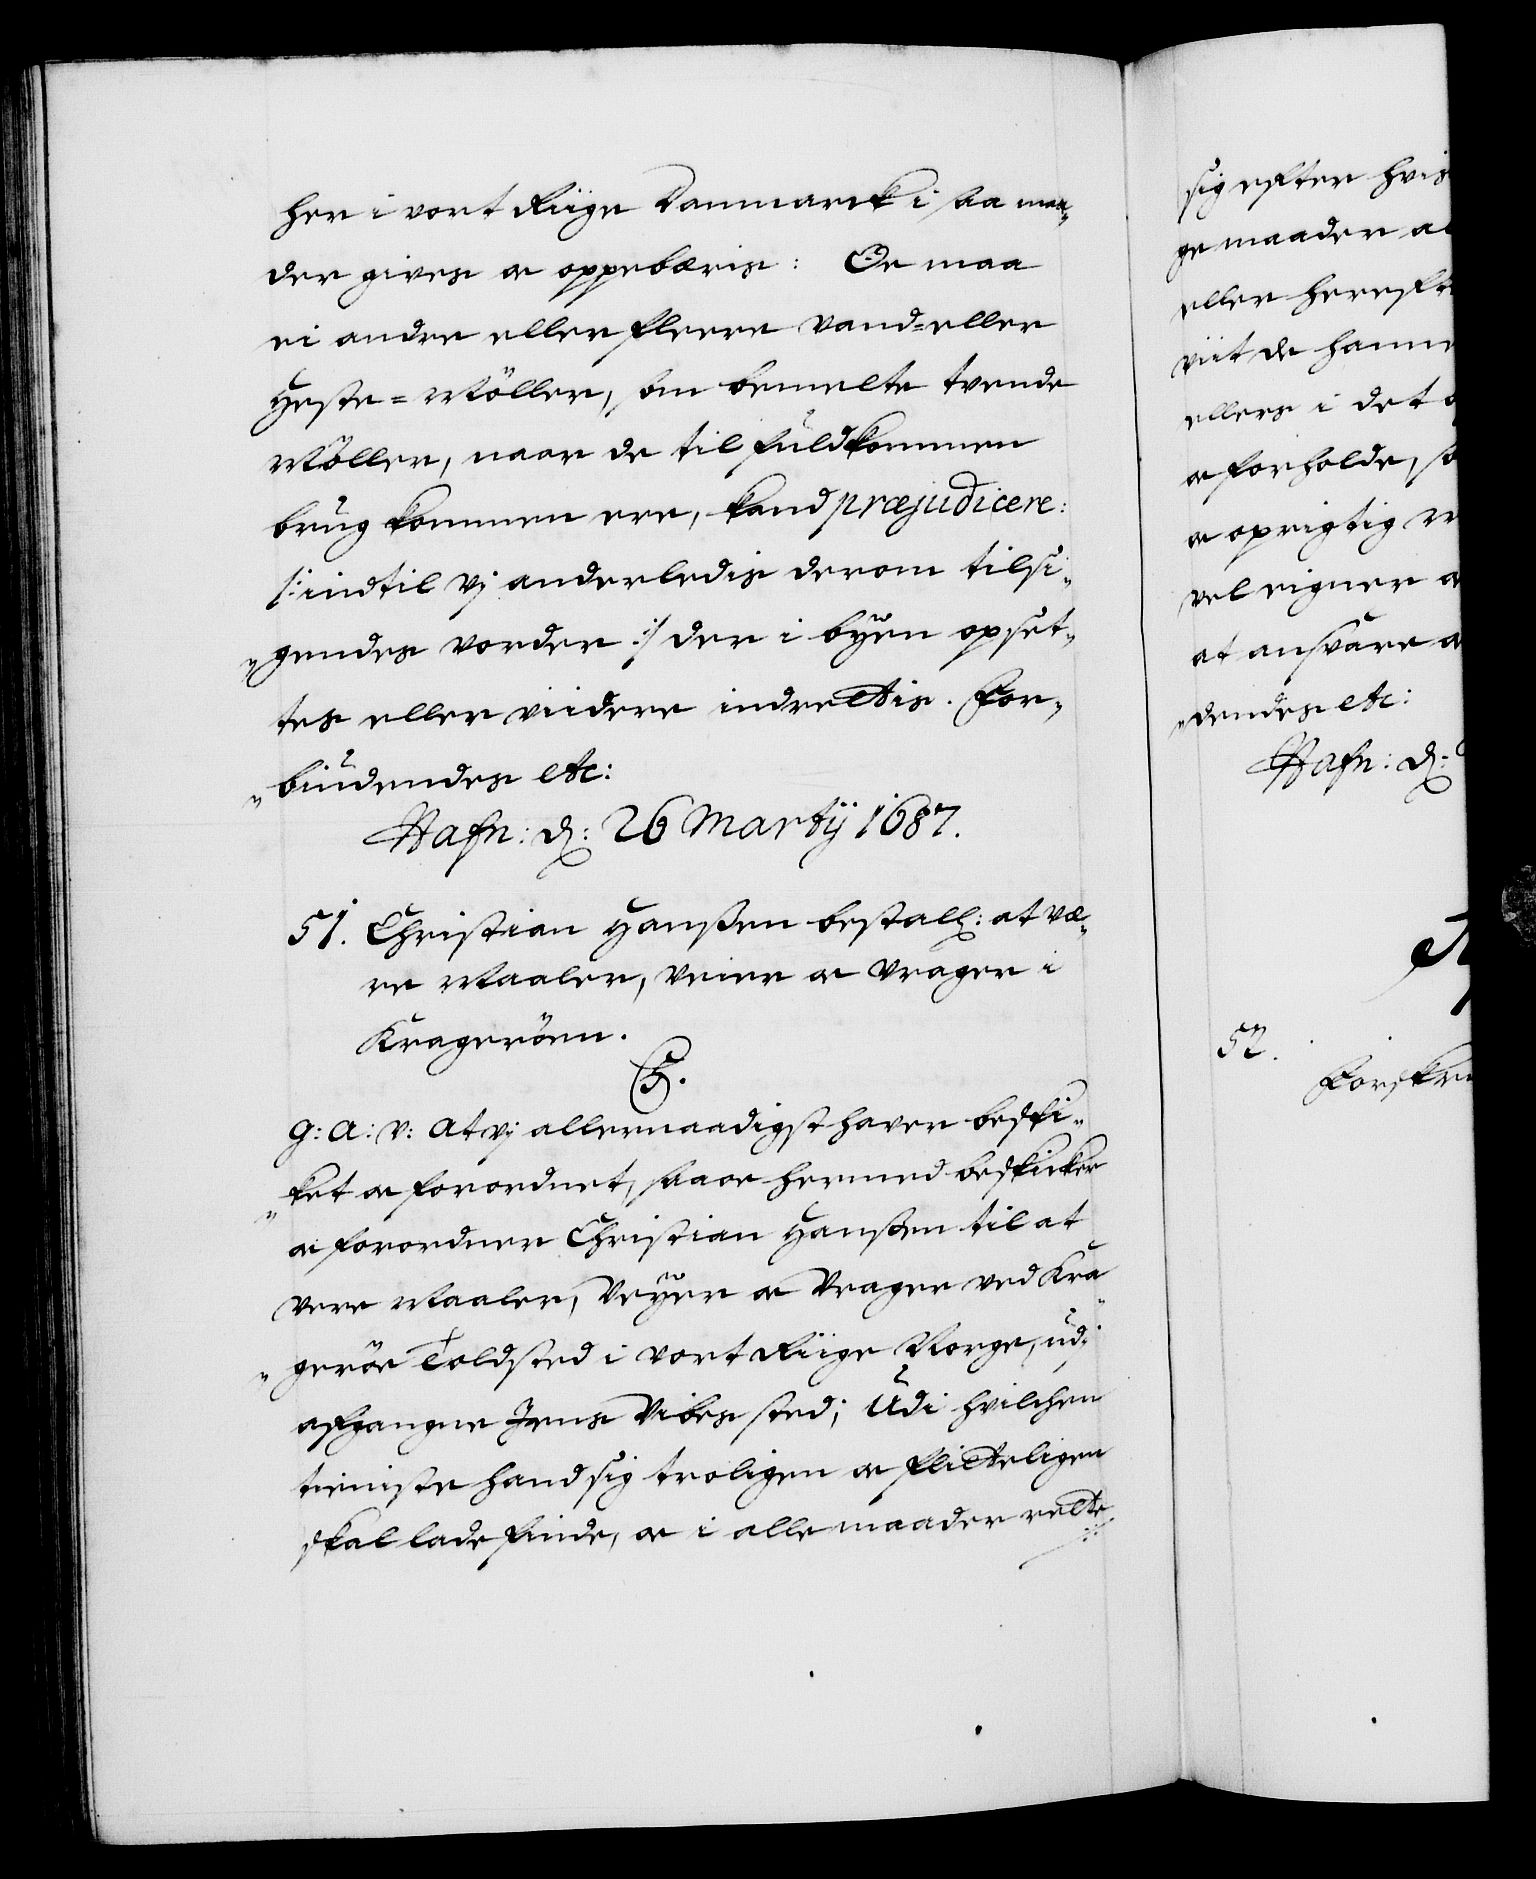 her i vort Riige Danmarck i saa maa¬
der gives oc oppebæris: Oc maa
ei andre eller fleere vand-eller
Heste=Möller, som bemelte tvende
Möller, naar de til fuldkommen
brug kommen ere, kand præjudicere:
/: indtil Vj anderledis derom tilsi¬
"gendes vorder :/ der i byen opset¬
tes eller viidere indrettis. For¬
"biudendes etc:
Hafn: d: 26 Martij 1687.
51. Christian Hanßen bestall: at væ¬
re Maaler, Veier oc Vrager i
Kragerøen.
C5.
G: A: V: At Vj allernaadigst haver beski¬
"ket oc forordnet, saa oc hermed beskicker
oc forordner Christian Hanßen til at
vere Maaler, Veyer oc Vrager ved Kra¬
"geröe Toldsted i vort Riige Norge, udj
afgangne Jens Vibes sted; Udi hvilchen
tieniste hand sig troligen oc flitteligen
skal lade finde, oc i alle maader rette
sig efter hvis
ge maader
eller herefte
viit de hanne
ellers i det
oc forholde, so
oc oprigtig
vel eigner
at ansvare
"dendes etc:
Hafn: d:
52.
Forskre